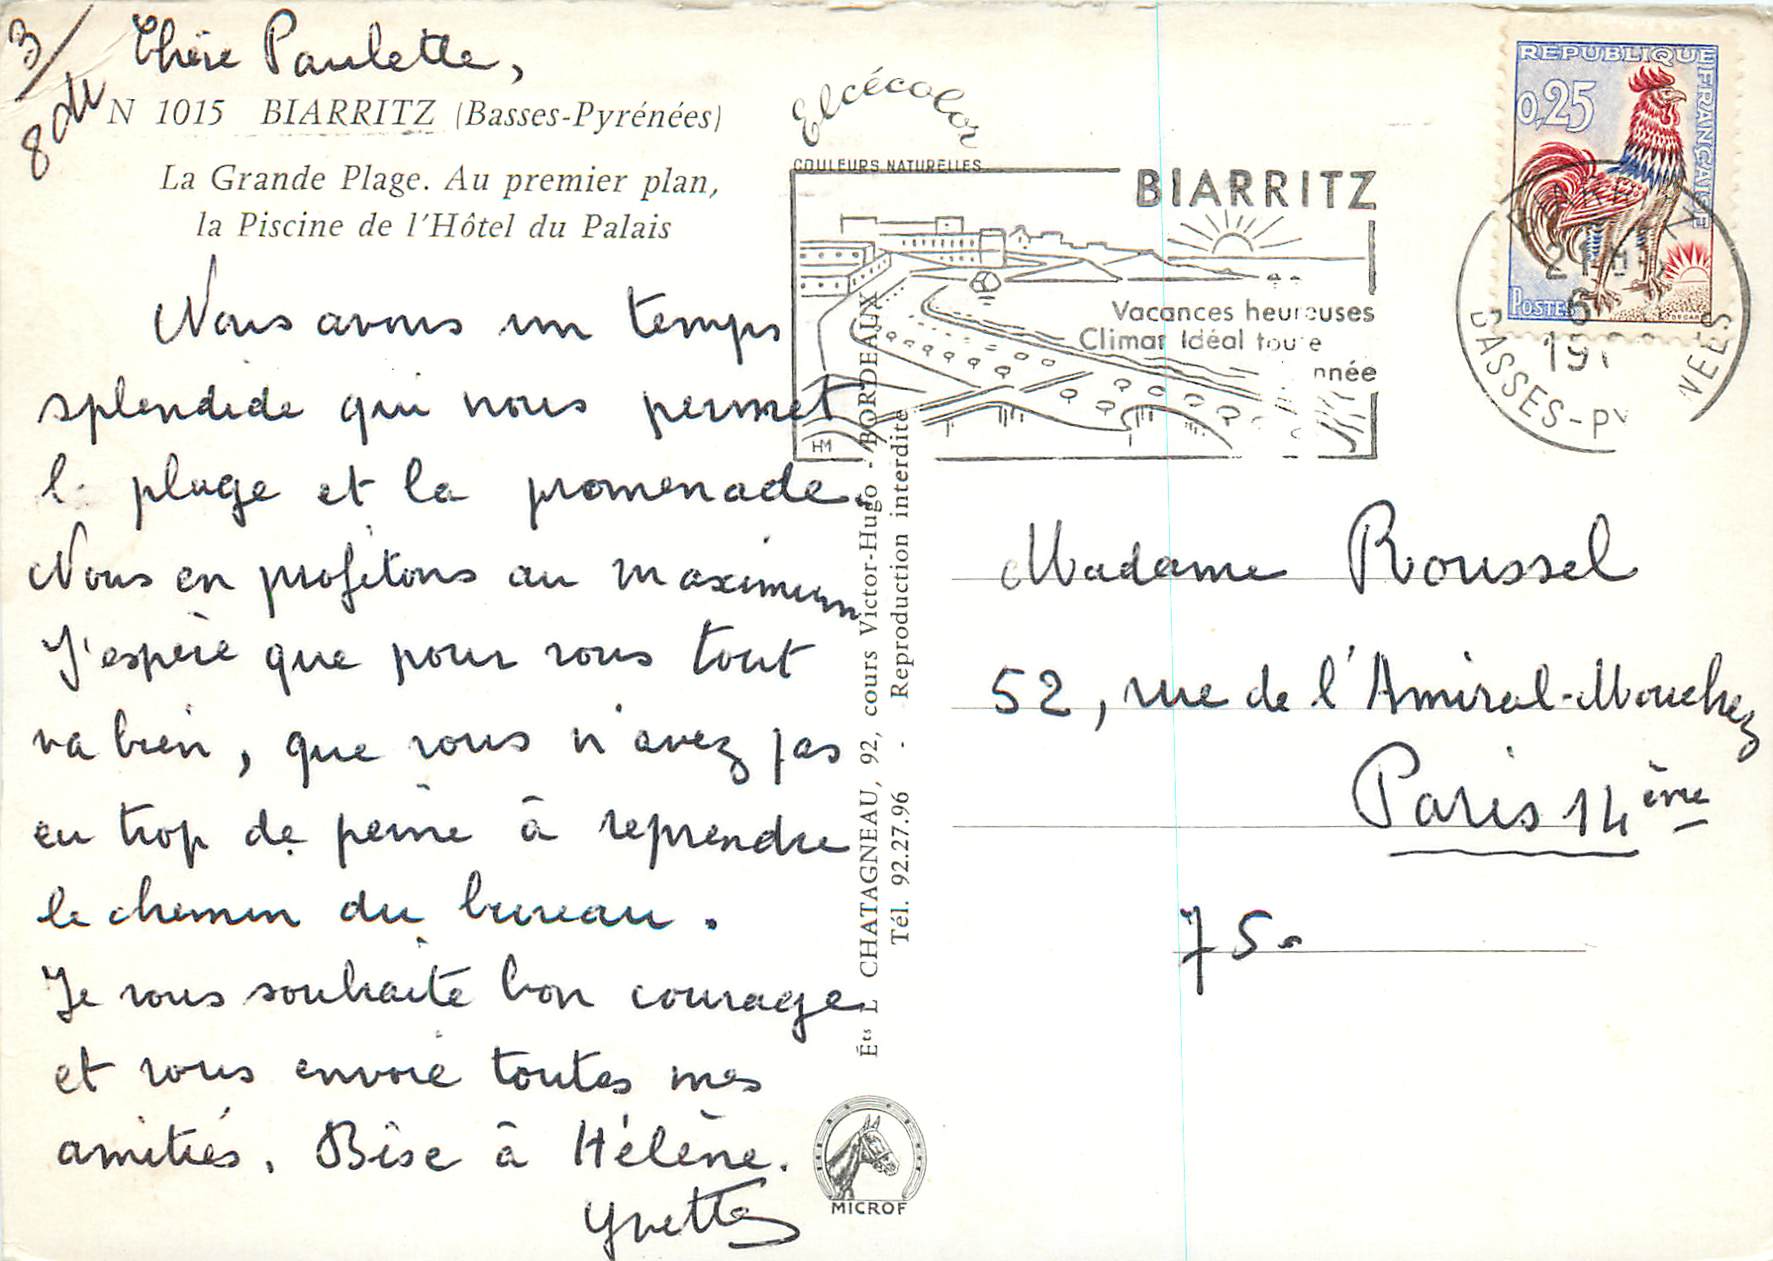 3/
8 du
Chère Paulette,
N 1015 BIARRITZ (Basses-Pyrénées)
La Grande Plage. Au premier plan,
la Piscine de l'Hôtel du Palais
Nous avons un temps
splendide qui nous permet
l plage et la promenade.
Nous en profitons au maximum
J'espère que pour vous tout
va bien, que vous n'avez pas
eu trop de peine à reprendre
le chemin du bureau.
Je vous souhaite bon courage
et vous envoie toutes mes
amitiés. Bise à Hélène.
Yvette
Elcécolor
COULEURS NATURELLES
Éts L CHATAGNEAU, 92, cours Victor-Hugo - BORDEAUX
Tél. 92.27.96 - Reproduction interdite
MICROF
BIARRITZ
Vacances heureuses
Climat Idéal toute
nnée
HM
REPUBLIQUE FRANÇAISE
0,25
POSTES
DECARIS
21H
6
19
BASSES-PY NEES
Madame Roussel
52, rue de l'Amiral-Mouchez
Paris 14ème
75.